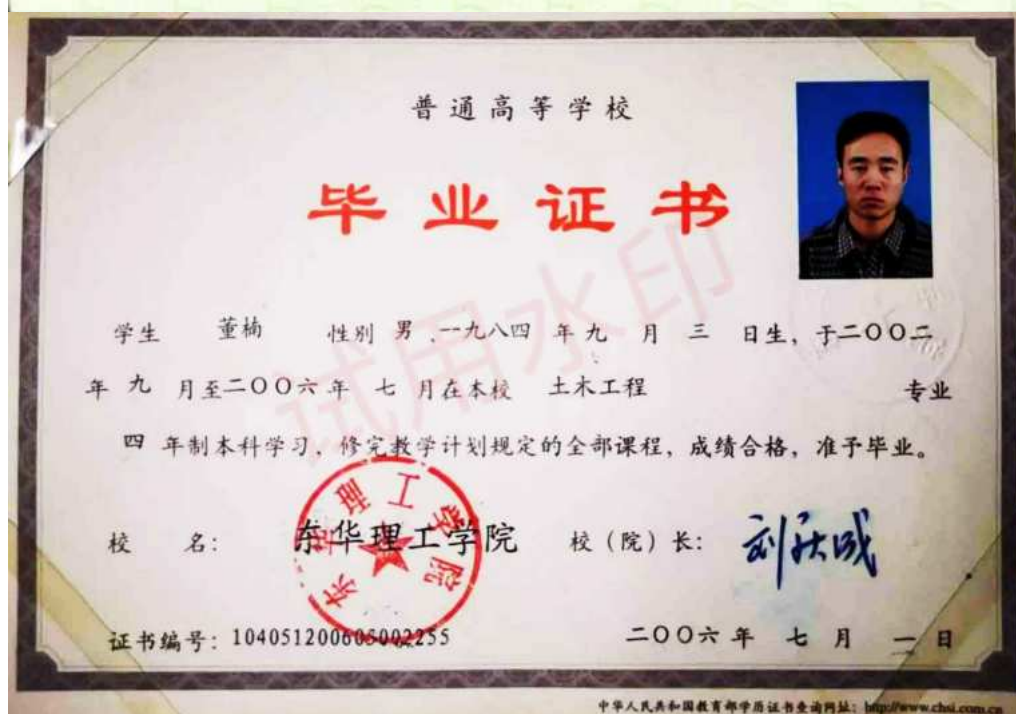 普通高等学校
毕业证书
学生 董楠 性别 男 , 一九八四 年 九 月 三 日生, 于二〇〇二
年 九 月至二〇〇六 年 七 月在本校 土木工程 专业
四 年制本科学习, 修完教学计划规定的全部课程, 成绩合格, 准予毕业。
校 名: 东华理工学院 校(院)长:
东华理工学院
证书编号: 104051200605002255 二〇〇六 年 七 月 一 日
中华人民共和国教育部学历证书查询网址: http://www.chsi.com.cn
试用水印